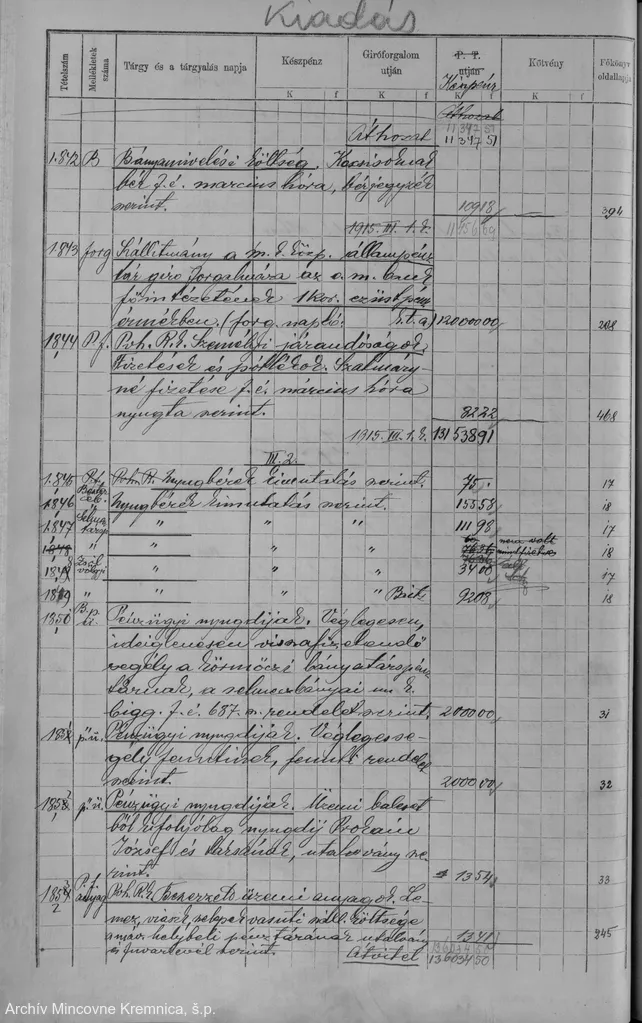 Kiadás
Tételszám Mellékletek száma Tárgy és a tárgyalás napja Készpénz Giróforgalom utján P. T. utján Kötvény Főkönyv oldallapja
Készpénz
K f K f K f K f
Áthozat
11347 51
Áthozat 11347 51
1842 B Bányamivelési költség.
bér f. é. március hóra, bérjegyzék
szerint. 109 18 394
1915. III. 1. 11456 69
1843 forg Szállitmány a m. k. közp. állampénz
tár giro forgalmára az o. m. bank
főintézetének 1 kor. ezüst pénz
érmékben. (forg. napló. 120000 00 208
1844 P. f. Poh. R. k. Személyi járandóságok.
Fizetések és pótlékok. Szalmáry-
né fizetése f. é. március hóra
nyugta szerint. 82 22 468
1915. III. 1. 131538 91
III. 2.
1845 Poh. R. Nyugbérek kimutatás szerint. 75 17
1846 Nyugbérek kimutatás szerint. 155 58 18
1847 " " " 111 98 17
1848 " " " " nem volt 18
1848 " " " 34 00 17
1849 " " " " 92 08 18
1850 B. p. Pénzügyi nyugdijak. Véglegesen,
ideiglenesen visszafizetendő
segély a körmöczi bányatárspénz
tárnak, a selmeczbányai m. k.
bigg. f. é. 687. sz. rendelet szerint. 2000 00 31
185 p. ü. Pénzügyi nyugdijak. Végleges se-
gély fentinek, fenti rendelet
szerint. 2000 00 32
185 p. ü. Pénzügyi nyugdijak. Üzemi baleset
ből kifolyólag nyugdij
József és társainak, utalvány sze-
rint. 13 54 33
185 anyag Poh. R. k. Beszerzett üzemi anyagok. Le-
mez, vasuti száll. költsége
a máv. helybeli pénztárának utalvány 13 41 245
és fuvarlevél szerint. 136034 50
Átvitel 136034 50
Archív Mincovne Kremnica, š.p.